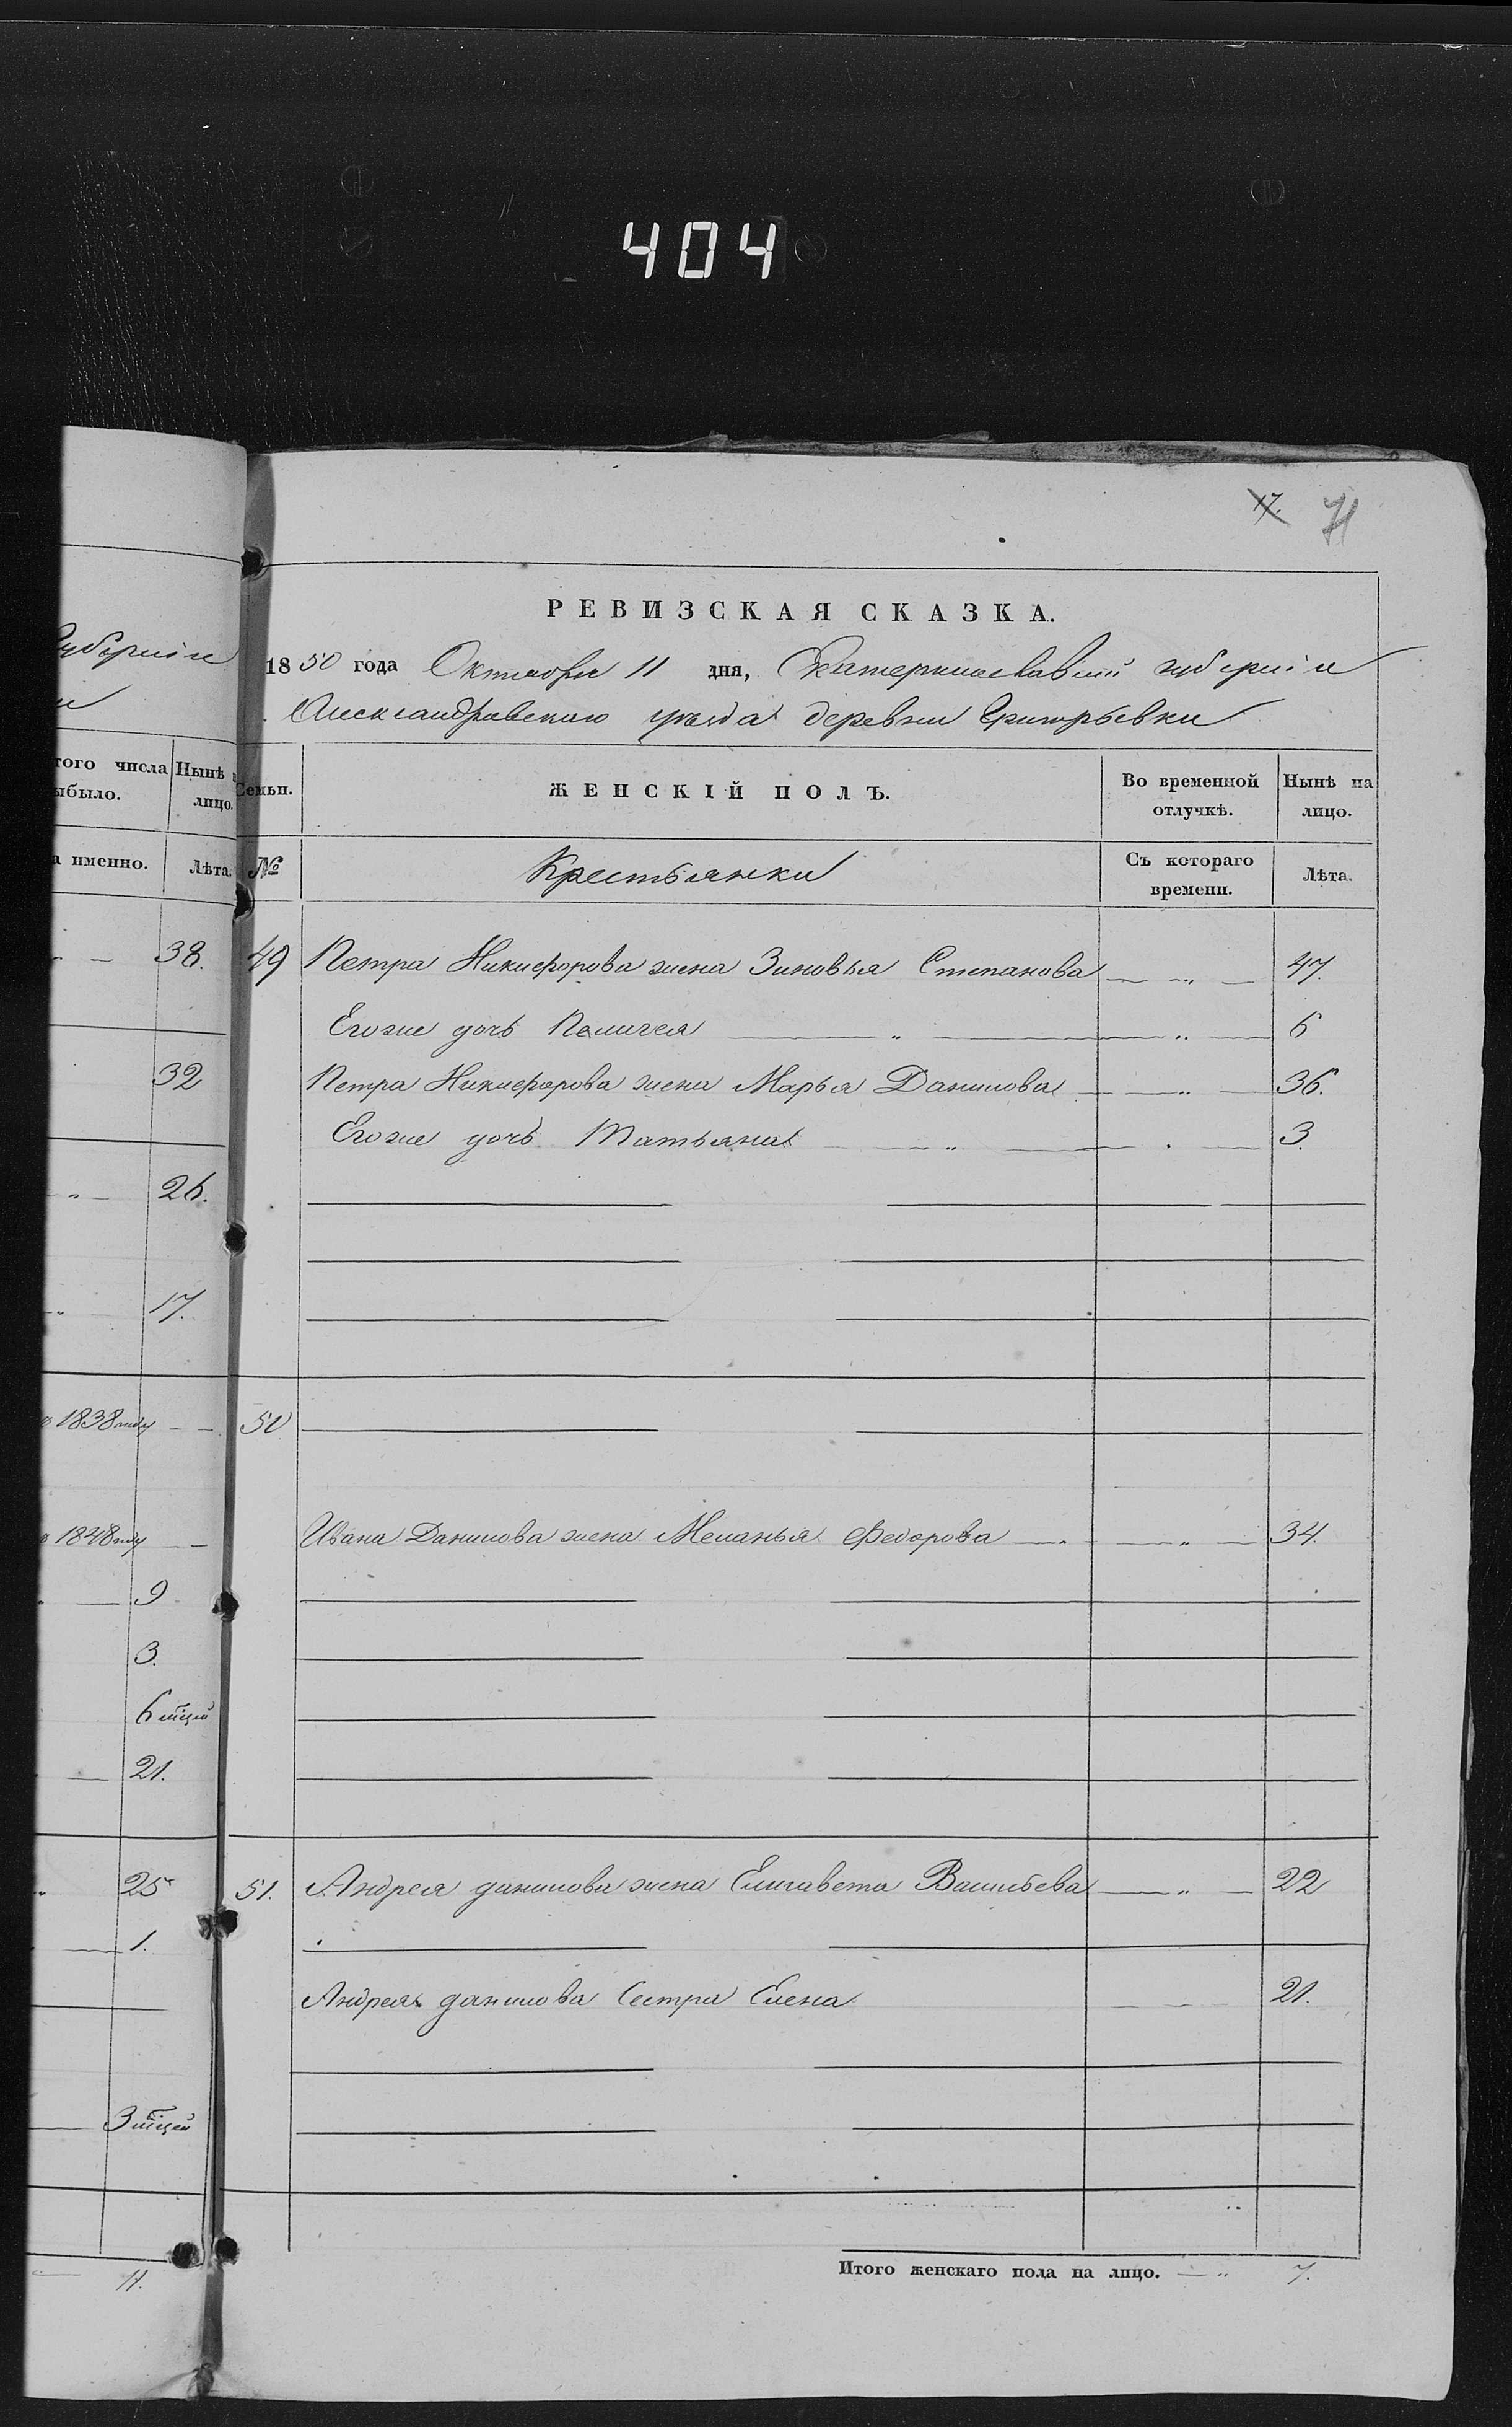 404
17. 71
РЕВИЗСКАЯ СКАЗКА.
1850 года Октября 11 дня, Екатеринославской губерніи
Александровскаго уѣзда деревни Григорьевки
губерніи
того числа
ыбыло.
Нынѣ н
лицо.
а именно.
Лѣта.
Семьи. ЖЕНСКІЙ ПОЛЪ. Во временной отлучкѣ. Нынѣ на лицо.
№ Крестьянки Съ котораго времени. Лѣта.
38. 49 Петра Никифорова жена Зиновья Степанова — „ — 47.
Егоже дочь Пелагея — „ — „ — 6
32 Петра Никифорова жена Марья Данилова — „ — 36.
Егоже дочь Татьяна — „ — 3.
„ 26.
„ 17.
1838 году — 50
1848 году — Ивана Данилова жена Меланья Федорова — „ — „ — 34.
9
3.
6 мѣсяц
21.
25 51. Андрея данилова жена Елизавета Васильева — „ — 22
1.
Андрея данилова Сестра Елена 21.
3 мѣсяц
11. Итого женскаго пола на лицо. — „ 7.